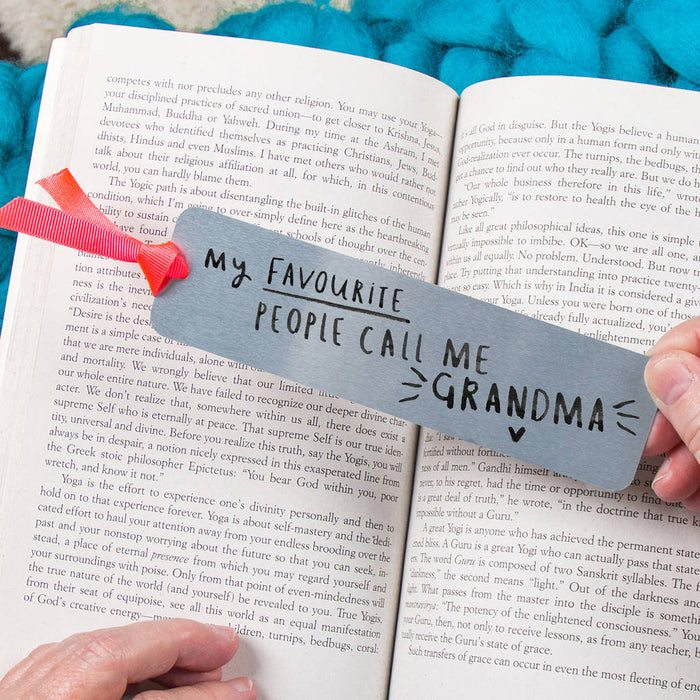 competes with nor precludes any other religion. You may use your Yoga—
your disciplined practices of sacred union—to get closer to Krishna, Jesus,
Muhammad, Buddha or Yahweh. During my time at the Ashram, I met
devotees who identified themselves as practicing Christians, Jews, Bud-
dhists, Hindus and even Muslims. I have met others who would rather not
talk about their religious affiliation at all, for which, in this contentious
world, you can hardly blame them.
The Yogic path is about disentangling the built-in glitches of the human
condition, which I'm going to over-simplify define here as the heartbreaking
to sustain
schools of thought over the cen-
inherently
tion attributes
ness is the inevi
civilization's need
"Desire is the des
ment is a simple case
that we are mere individuals, alone with our
and mortality. We wrongly believe that our limited
our whole entire nature. We have failed to recognize our deeper divine char-
acter. We don't realize that, somewhere within us all, there does exist a
supreme Self who is eternally at peace. That supreme Self is our true iden-
tity, universal and divine. Before you realize this truth, say the Yogis, you will
always be in despair, a notion nicely expressed in this exasperated line from
the Greek stoic philosopher Epictetus: "You bear God within you, poor
wretch, and know it not."
Yoga is the effort to experience one's divinity personally and then to
hold on to that experience forever. Yoga is about self-mastery and the dedi-
cated effort to haul your attention away from your endless brooding over the
past and your nonstop worrying about the future so that you can seek, in-
stead, a place of eternal presence from which you may regard yourself and
your surroundings with poise. Only from that point of even-mindedness will
the true nature of the world (and yourself) be revealed to you. True Yogis,
from their seat of equipoise, see all this world as an equal manifestation
of God's creative energy—men, women, children, turnips, bedbugs, coral:
MY FAVOURITE
PEOPLE CALL ME
GRANDMA
it's all God in disguise. But the Yogis believe a human
opportunity, because only in a human form and only with
God-realization ever occur. The turnips, the bedbugs, th
a chance to find out who they really are. But we do h
"Our whole business therefore in this life," wrote
Yogically, "is to restore to health the eye of the
may be seen."
Like all great philosophical ideas, this one is simple
virtually impossible to imbibe. OK—so we are all one, a
within us all equally. No problem. Understood. But now
place. Try putting that understanding into practice twenty-
so easy. Which is why in India it is considered a give
your Yoga. Unless you were born one of those
already fully actualized, you'
enlightenment.
Guru.
fortified without
of all men." Gandhi himself
never, to his regret, had the time or opportunity to find one.
is a great deal of truth," he wrote, "in the doctrine that true
impossible without a Guru."
A great Yogi is anyone who has achieved the permanent state
ened bliss. A Guru is a great Yogi who can actually pass that state
ers. The word Guru is composed of two Sanskrit syllables. The f
"darkness," the second means "light." Out of the darkness and
What passes from the master into the disciple is somethi
mantravirya: "The potency of the enlightened consciousness." You
Guru, then, not only to receive lessons, as from any teacher, b
tually receive the Guru's state of grace.
Such transfers of grace can occur in even the most fleeting of en